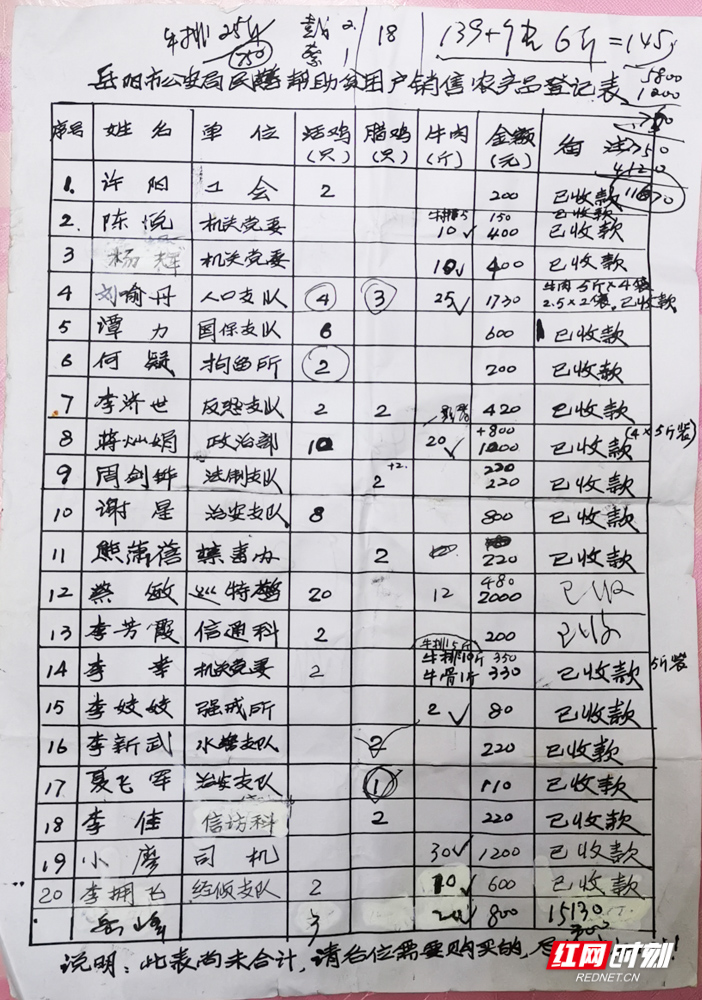 牛排 25斤 2 18 139+9袋 6斤 =145斤
750 1
岳阳市公安局民警帮助贫困户销售农产品登记表 5800
1200
序号 姓名 单位 活鸡(只) 腊鸡(只) 牛肉(斤) 金额(元) 备注
750
4120
1. 许阳 工会 2 200 已收款 11870
2. 陈悦 机关党委 牛排5 10✓ 150 400 已收款 已收款
3 杨辉 机关党委 10✓ 400 已收款
4 刘喻丹 人口支队 4 3 25✓ 1730 牛肉5斤×4袋 2.5×2袋. 已收款
5 谭力 国保支队 6 600 已收款
6 何疑 拘留所 2 200 已收款
7 李济世 反恐支队 2 2 420 已收款
8 蒋灿娟 政治部 10 20✓ +800 1000 已收款 (4×5斤装)
9 周剑铧 法制支队 2 +2. 220 220 已收款
10 谢星 治安支队 8 800 已收款
11 熊蒲蓓 禁毒办 2 220 已收款
12 蔡敏 巡特警 20 12 480 2000 已收
13 李芳霞 信通科 2 200 已收
14 李幸 机关党委 2 牛排15斤 牛排10斤 牛骨1斤 350 330 已收款 5斤装
15 李姣姣 强戒所 2✓ 80 已收款
16 李新武 水警支队 2 220 已收款
17 夏飞军 治安支队 1 110 已收款
18 李佳 信访科 2 220 已收款
19 小廖 司机 30✓ 1200 已收款
20 李拥飞 经侦支队 2 10✓ 600 已收款
岳峰 3 20✓ 800 15130
300
说明：此表尚未合计，请各位需要购买的，尽
红网时刻
REDNET.CN